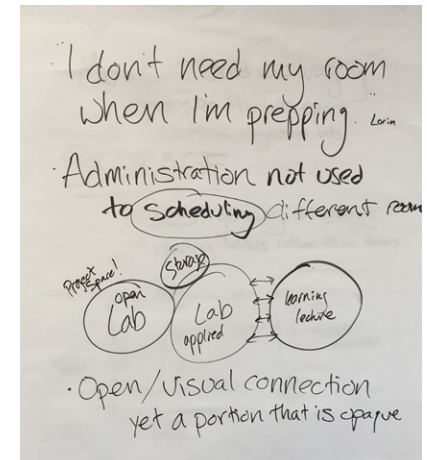 "I don't need my room
when I'm prepping." Lorin
· Administration not used
to scheduling different room
Project Space!
storage
open
Lab
Lab
applied
learning
lecture
· Open/visual connection
yet a portion that is opaque